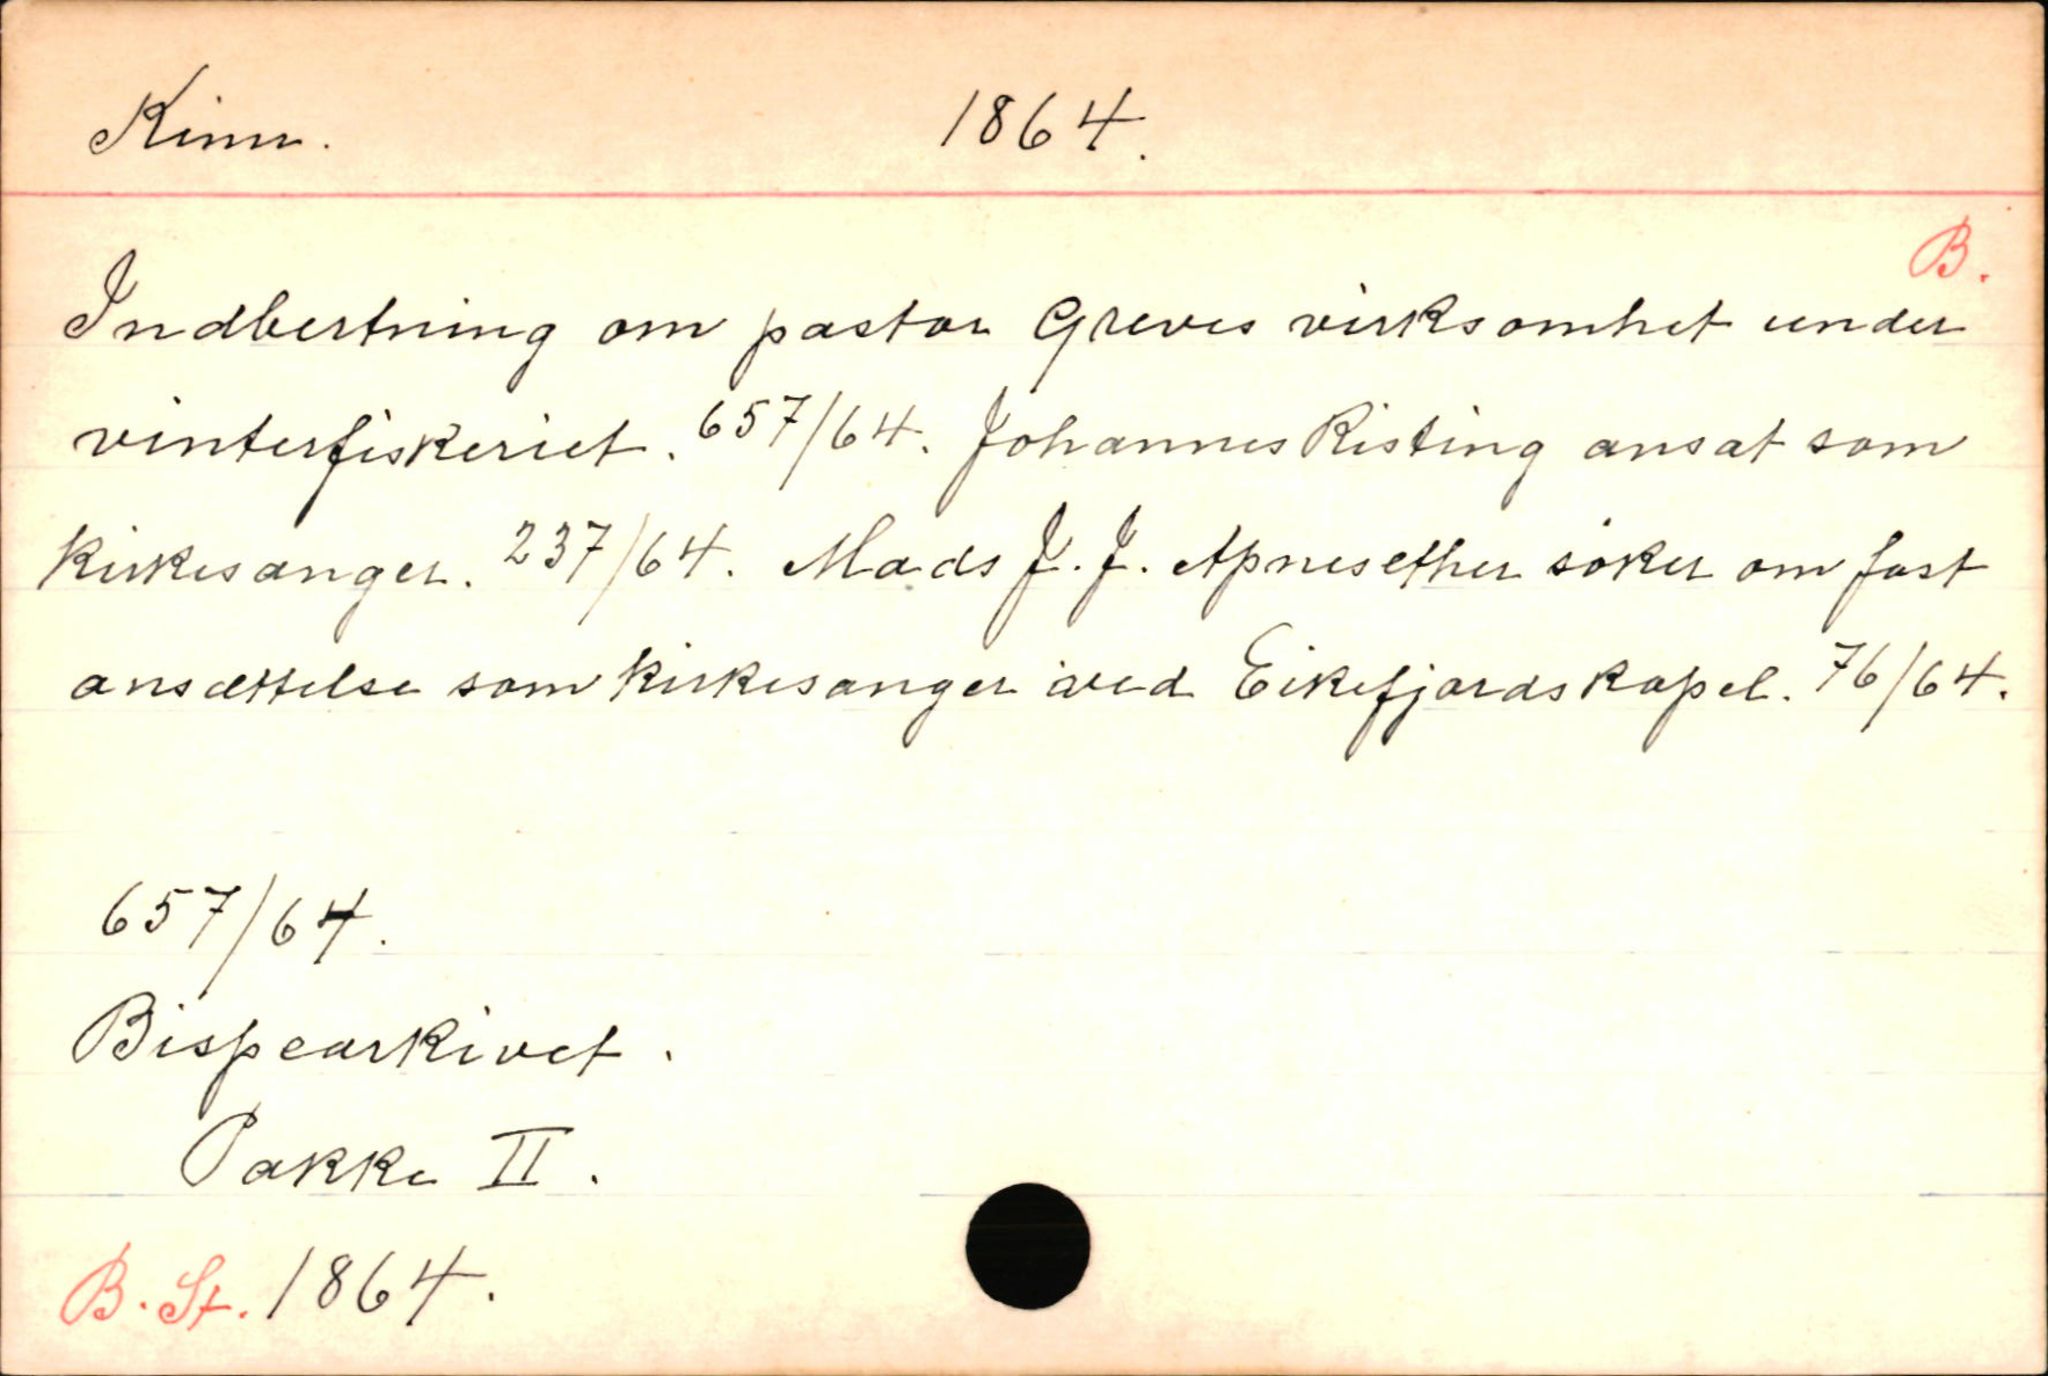 Kinn. 1864.
B.
Indbertning om pastor Greves virksomhet under
vinterfiskeriet. 657/64. Johannes Risting ansat som
kirkesanger. 237/64. Mads J. J. Apnesether søker om fast
ansættelse som kirkesanger ved Eikefjords kapel. 76/64.
657/64.
Bispearkivet.
Pakke II.
B. St. 1864.